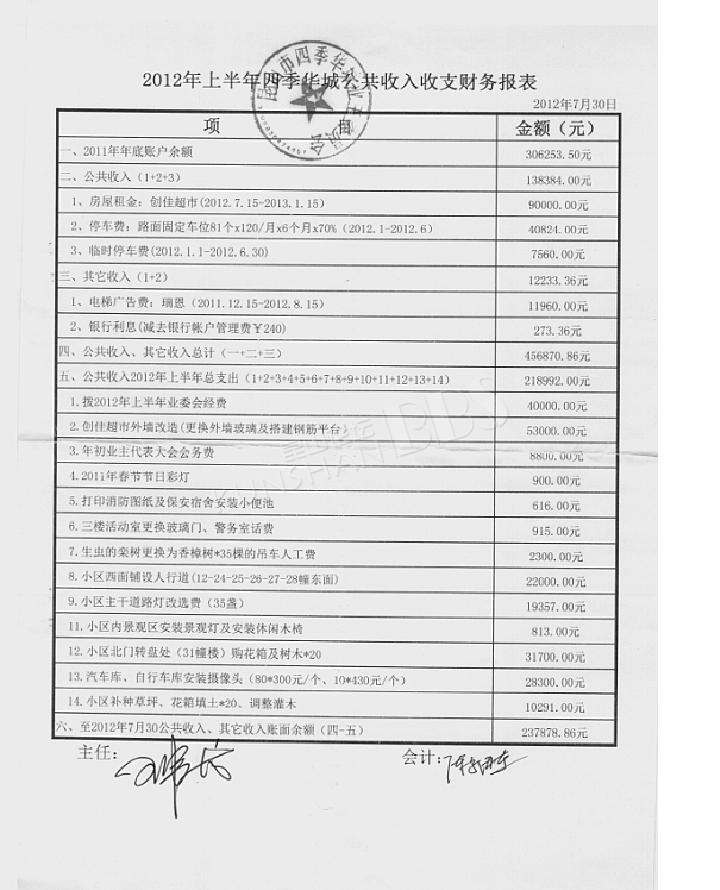 2012年上半年四季华城公共收入收支财务报表
2012年7月30日
项 目 金额（元）
一、2011年年底账户余额 306253.50元
二、公共收入（1+2+3） 138384.00元
1、房屋租金：创佳超市(2012.7.15-2013.1.15) 90000.00元
2、停车费：路面固定车位81个x120/月x6个月x70%（2012.1-2012.6） 40824.00元
3、临时停车费(2012.1.1-2012.6.30) 7560.00元
三、其它收入（1+2） 12233.36元
1、电梯广告费：瑞恩（2011.12.15-2012.8.15） 11960.00元
2、银行利息(减去银行帐户管理费￥240) 273.36元
四、公共收入、其它收入总计（一+二+三） 456870.86元
五、公共收入2012年上半年总支出（1+2+3+4+5+6+7+8+9+10+11+12+13+14） 218992.00元
1.拨2012年上半年业委会经费 40000.00元
2.创佳超市外墙改造(更换外墙玻璃及搭建钢筋平台) 53000.00元
3.年初业主代表大会会务费 8800.00元
4.2011年春节节日彩灯 900.00元
5.打印消防图纸及保安宿舍安装小便池 616.00元
6.三楼活动室更换玻璃门、警务室话费 915.00元
7.生虫的栾树更换为香樟树*35棵的吊车人工费 2300.00元
8.小区西面铺设人行道(12-24-25-26-27-28幢东面) 22000.00元
9.小区主干道路灯改选费（35盏） 19357.00元
11.小区内景观区安装景观灯及安装休闲木椅 813.00元
12.小区北门转盘处（31幢楼）购花箱及树木*20 31700.00元
13.汽车库、自行车库安装摄像头（80*300元/个、10*430元/个） 28300.00元
14.小区补种草坪、花箱填土*20、调整灌木 10291.00元
六、至2012年7月30公共收入、其它收入账面余额（四-五） 237878.86元
主任： 会计：
KUNSHAN BBS